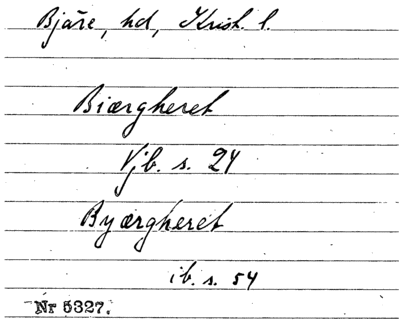 Bjäre, hd, Krist. l.
Biærgheret
Vjb. s. 24
Byærgheret
ib. s. 54
Nr 5327.